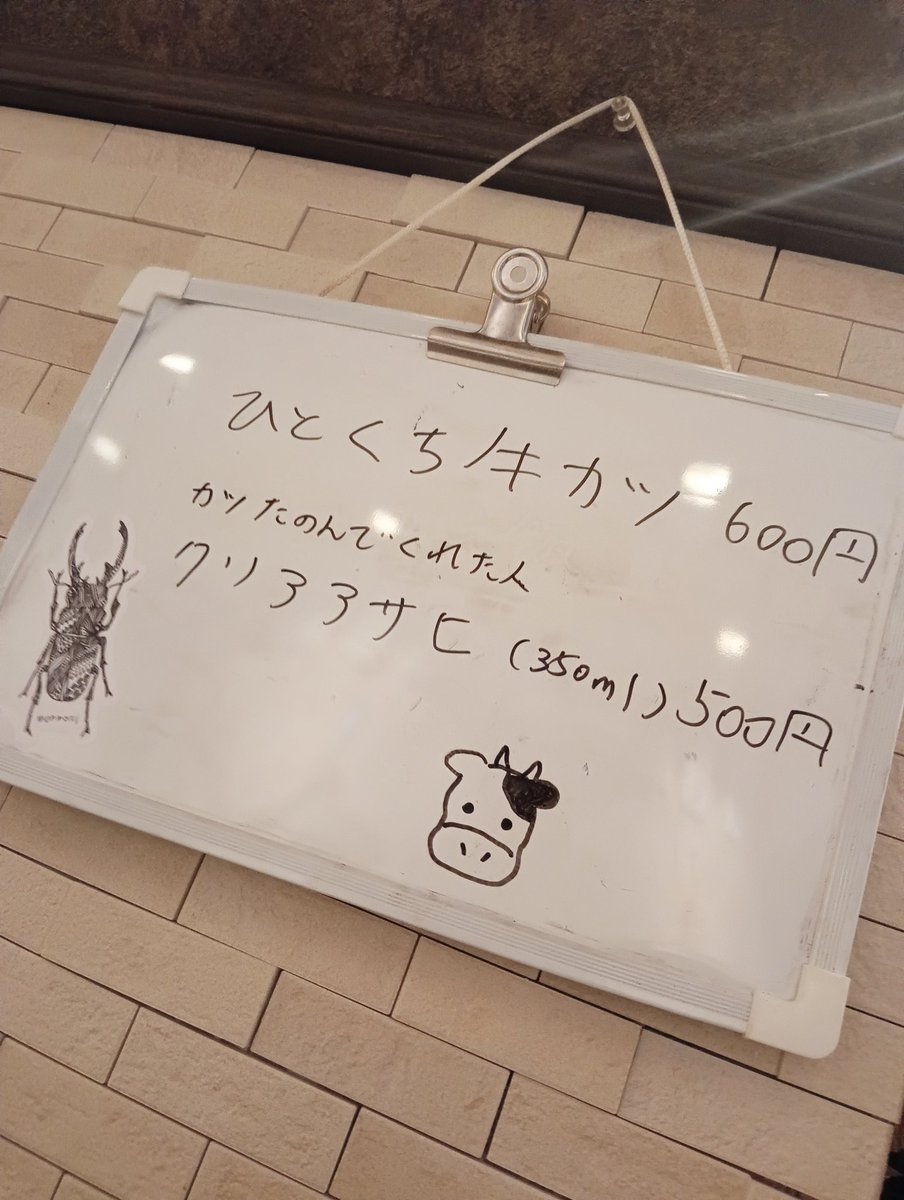 ひとくち牛カツ 600円
カツたのんでくれた人
クリアアサヒ (350ml) 500円